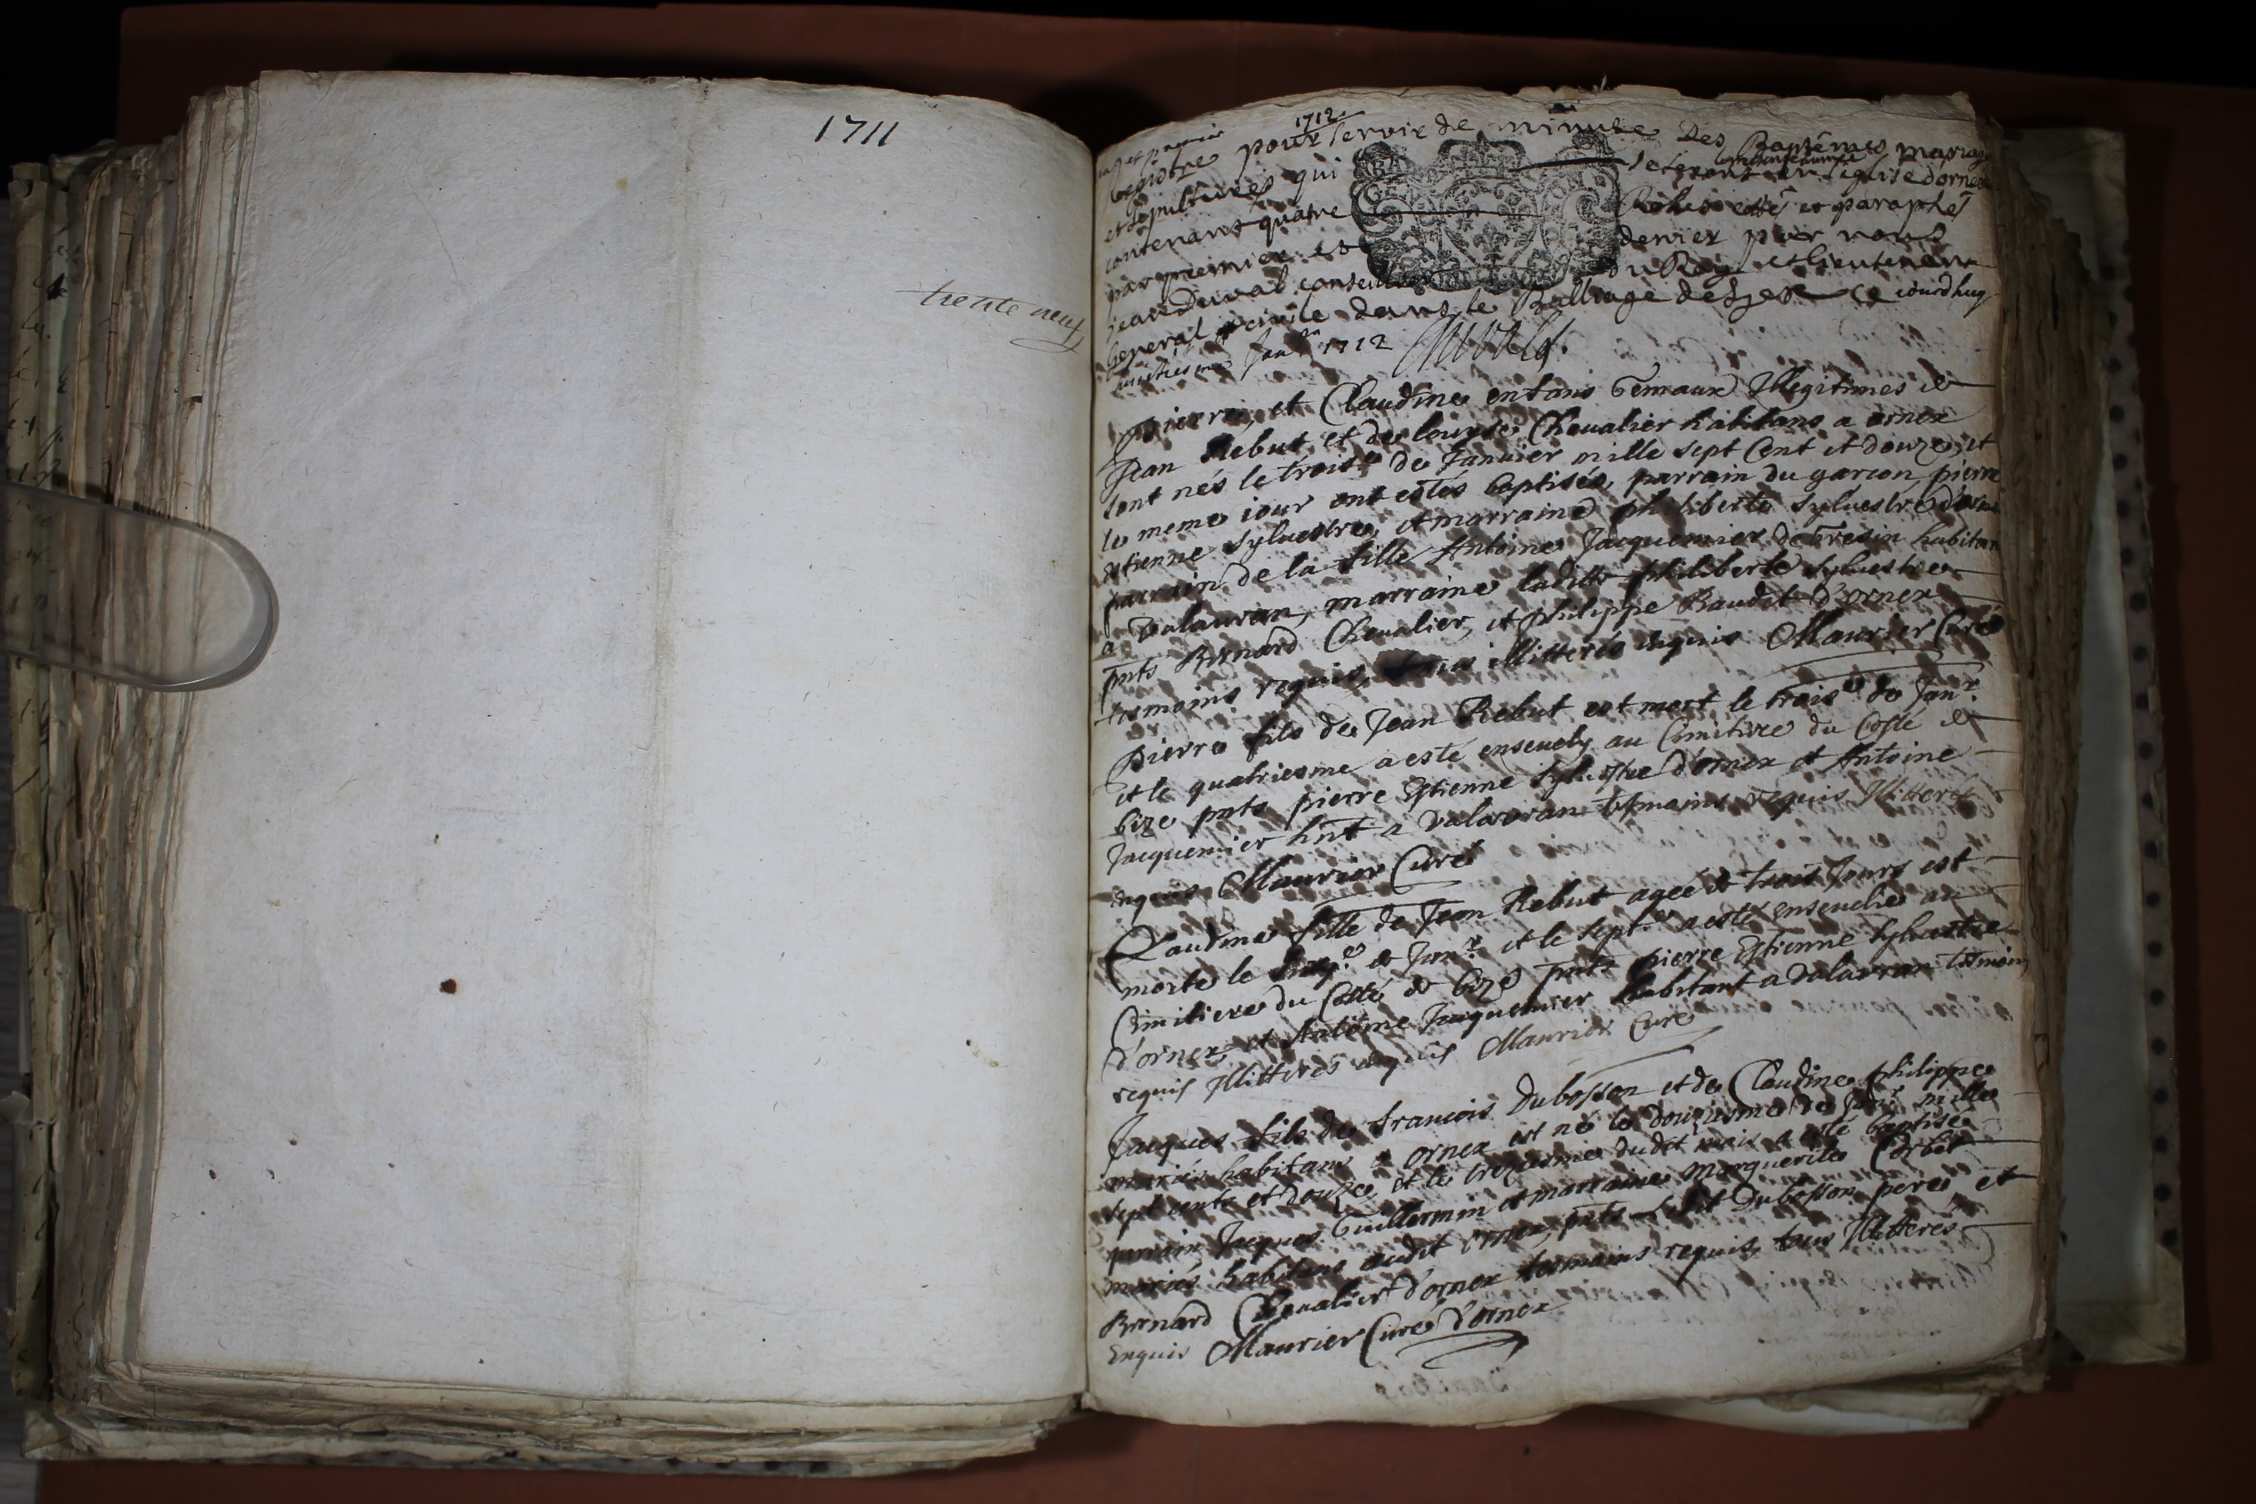 1711
trente neuf
1712
et premier
Registre pour servir de minutte Des Baptêmes mariages
et sepultures qui se feront en l'eglise dornex
contenant quatre Rolles cottés et paraphés
par premier et denier par nous
jean Duval conseiller du Roy et lieutenan
General civile dans le Balliage de Gex ce iourdhuy
Janr 1712 Duval
Pierre, et Claudine enfans Gemaux Illegitimes de
Jean Rebut et de louyse Chevalier habitans a ornex
sont nés le troise de Janvier mille sept Cent et douze, et
le meme iour ont estés baptisés, parrain du garcon pierre
estienne sylvestre, et marraine philiberte sylvestre d'ornex
parrain de la fille Antoine Jacquemier de Tresin habitan
a valavran, marraine laditte philiberte sylvestre
pnts Bernard Chevalier, et philippe Baudet d'ornex
tesmoins requis, tous illitterés enquis Maurier Curé
Pierre fils de Jean Rebut est mort le troise de Janr
et le quatriesme a esté ensevely au Cimitiere du Costé de
bize pnts pierre Estienne Sylvestre d'ornex et Antoine
Jacquemier hnt a valavran tesmoins requis Illitterés
enquis Maurier Curé
Claudine fille de Jean Rebut agée de trois Jours est
morte le de Janr et le sept.e a esté ensevelie au
Cimitiere du Costé de bize pnts pierre Estienne Sylvestre
d'ornex, et Antoine Jacquemier habitant a valavran tesmoins
requis Illitterés enquis Maurier Curé
Jacques fils de francois Dubosson et de Claudine philippe
mariés habitans a ornex est né le douziesme de Janr mille
sept cents et douze, et le treziesme dudit mois a esté baptisé
parrain Jacques Guillermin et marraine Marguerite Corbet
mariés habitans audit ornex, pnts ledit Dubosson pere, et
Bernard Chevalier d'ornex tesmoins requis, tous Illitterés
Enquis Maurier Curé d'ornex